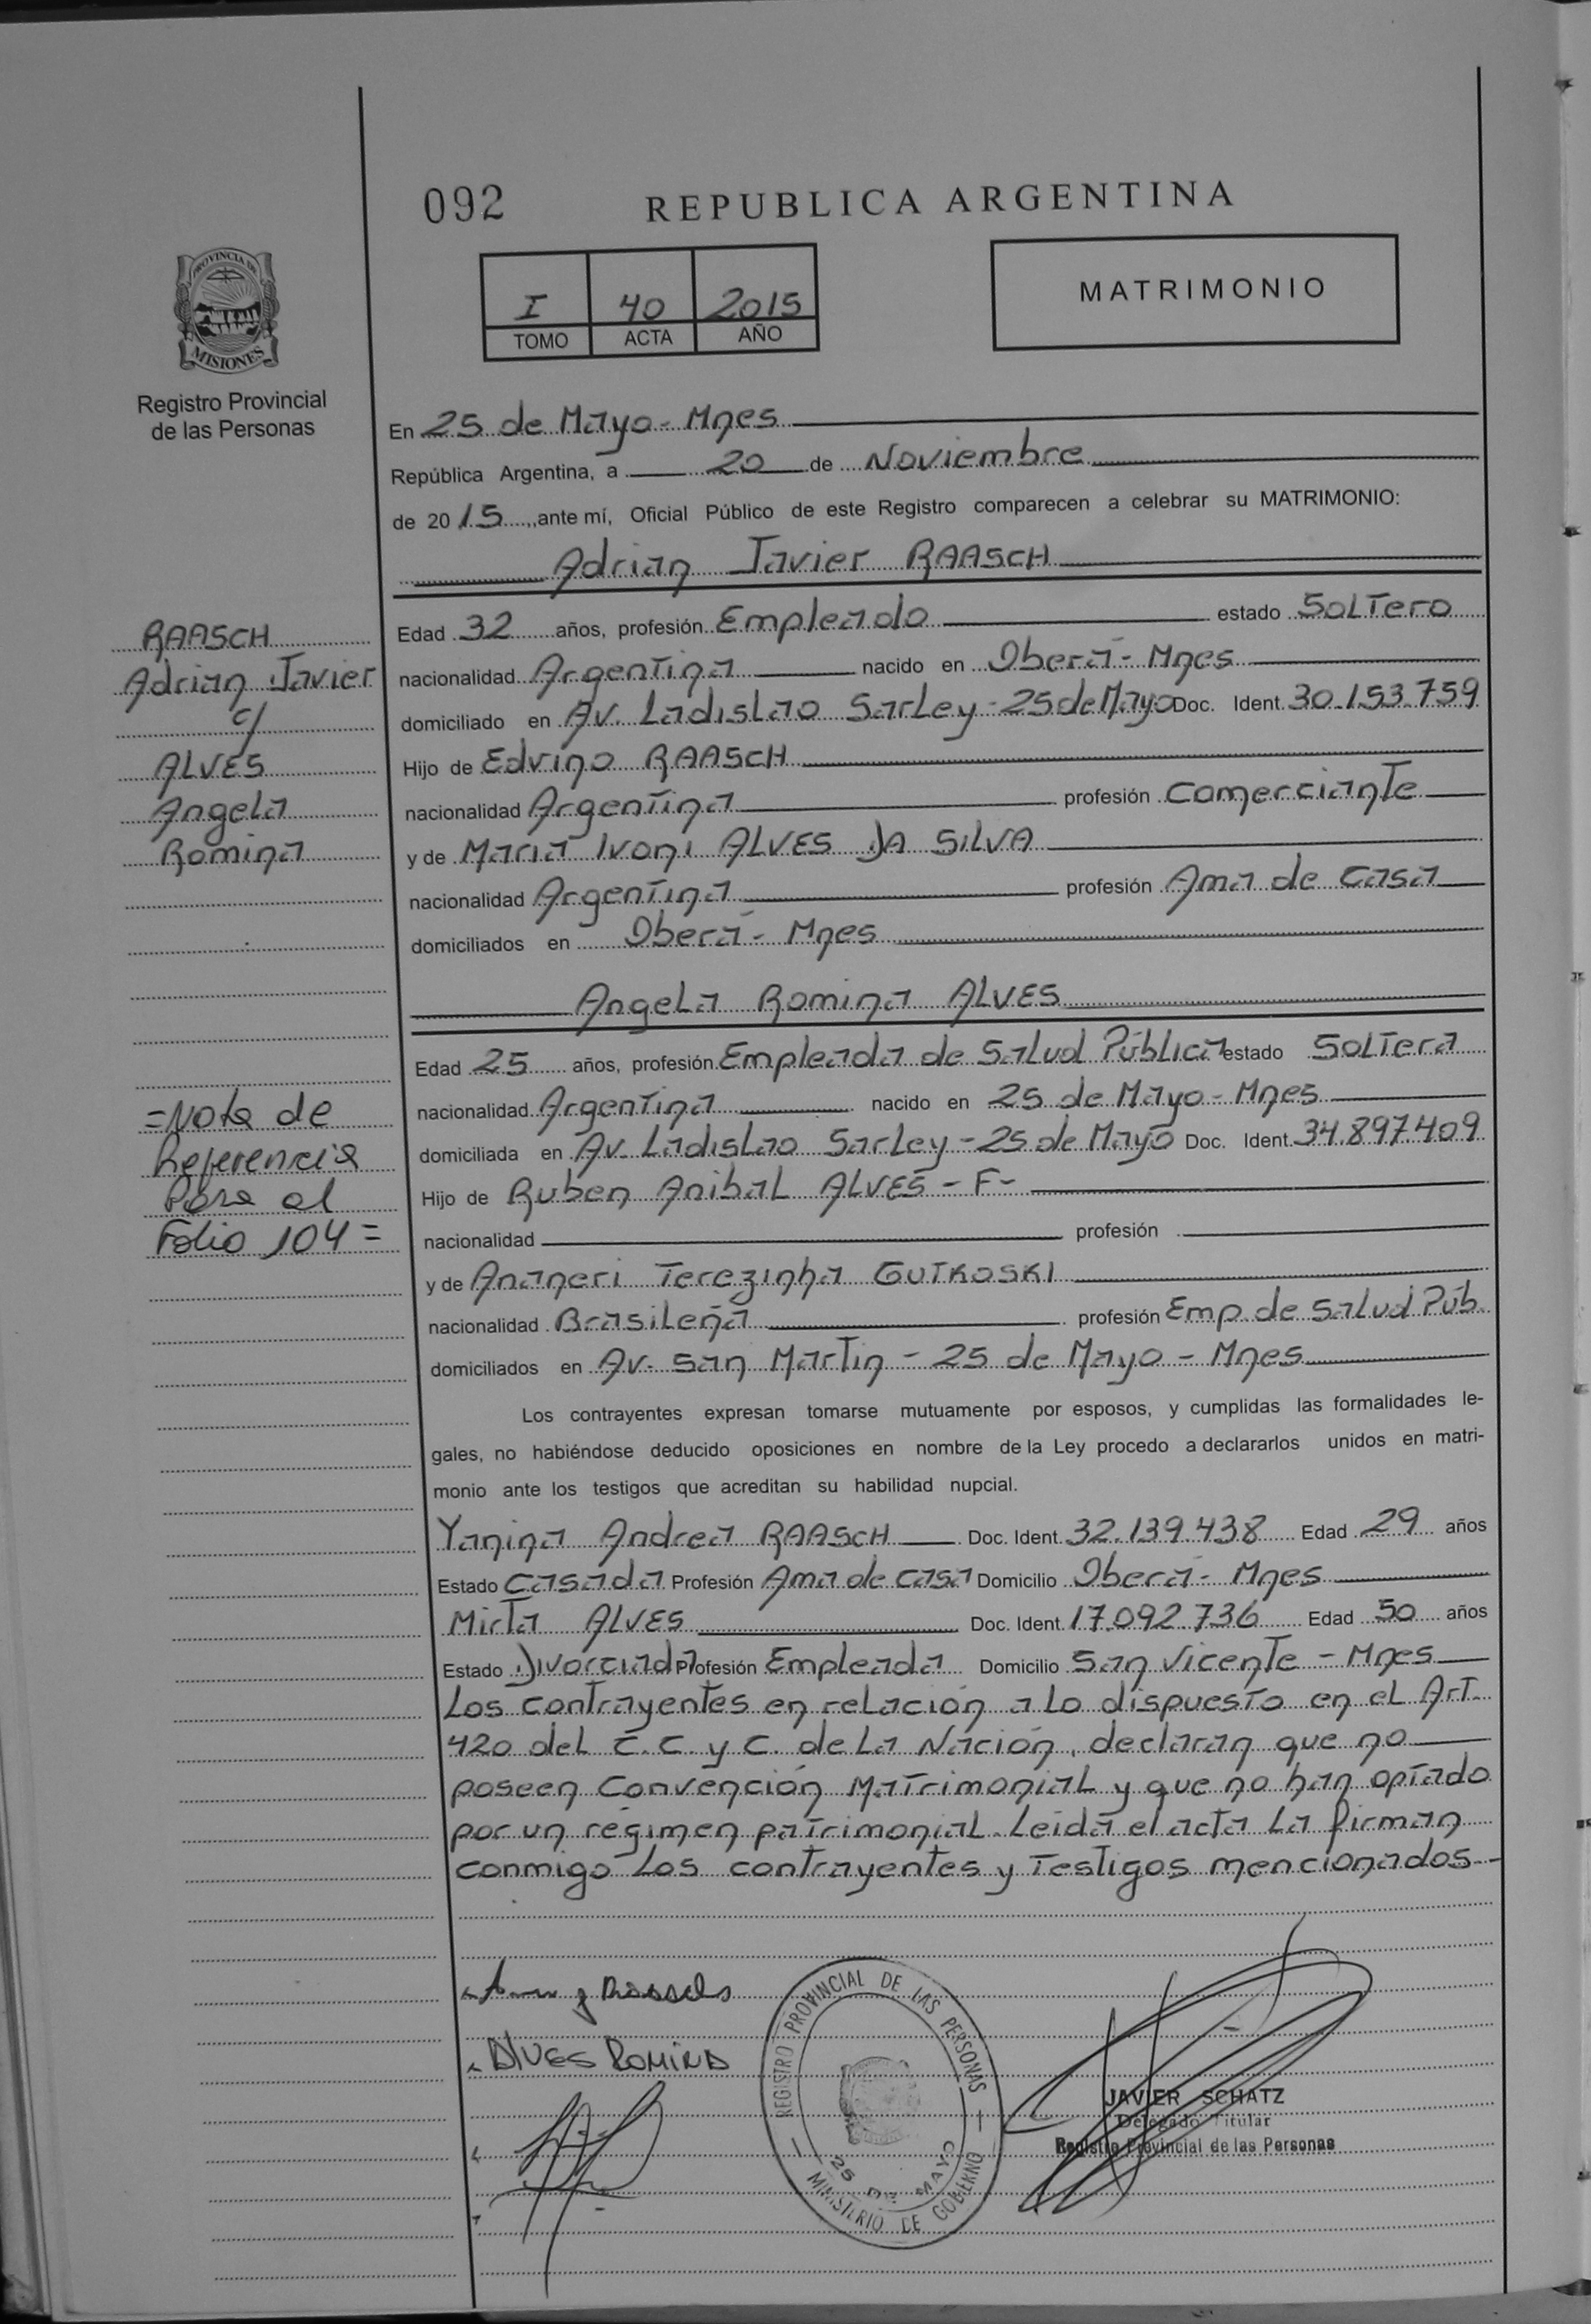 092 REPUBLICA ARGENTINA
PROVINCIA DE
MISIONES
Registro Provincial
de las Personas
I 40 2015
TOMO ACTA AÑO
MATRIMONIO
En 25 de Mayo - Mnes
República Argentina, a 20 de Noviembre
de 2015, ante mí, Oficial Público de este Registro comparecen a celebrar su MATRIMONIO:
Adrian Javier RAASCH
RAASCH
Adrian Javier
c/
ALVES
Angela
Romina
Edad 32 años, profesión Empleado estado Soltero
nacionalidad Argentina nacido en Oberá - Mnes
domiciliado en Av. Ladislao Sarley - 25 de Mayo Doc. Ident. 30.153.759
Hijo de Edvino RAASCH
nacionalidad Argentina profesión Comerciante
y de Maria Ivoni ALVES DA SILVA
nacionalidad Argentina profesión Ama de Casa
domiciliados en Oberá - Mnes
Angela Romina ALVES
Edad 25 años, profesión Empleada de Salud Pública estado Soltera
nacionalidad Argentina nacido en 25 de Mayo - Mnes
domiciliada en Av. Ladislao Sarley - 25 de Mayo Doc. Ident. 34.897.409
Hijo de Ruben Anibal ALVES - F -
nacionalidad profesión
y de Ananeri Terezinha GUTKOSKI
nacionalidad Brasileña profesión Emp. de Salud Púb.
domiciliados en Av. San Martin - 25 de Mayo - Mnes
=Nota de
Referencia
Pasa al
Folio 104=
Los contrayentes expresan tomarse mutuamente por esposos, y cumplidas las formalidades le-
gales, no habiéndose deducido oposiciones en nombre de la Ley procedo a declararlos unidos en matri-
monio ante los testigos que acreditan su habilidad nupcial.
Yanina Andrea RAASCH Doc. Ident. 32.139.438 Edad 29 años
Estado Casada Profesión Ama de casa Domicilio Oberá - Mnes
Mirta ALVES Doc. Ident. 17.092.736 Edad 50 años
Estado Divorciada Profesión Empleada Domicilio San Vicente - Mnes
Los contrayentes en relación a lo dispuesto en el Art.
420 del C.C. y C. de la Nación, declaran que no
poseen Convención Matrimonial y que no han optado
por un régimen patrimonial. Leida el acta la firman
conmigo los contrayentes y testigos mencionados
ALVES ROMINA
REGISTRO PROVINCIAL DE LAS PERSONAS
25 DE MAYO
MINISTERIO DE GOBIERNO
JAVIER SCHATZ
Delegado Titular
Registro Provincial de las Personas